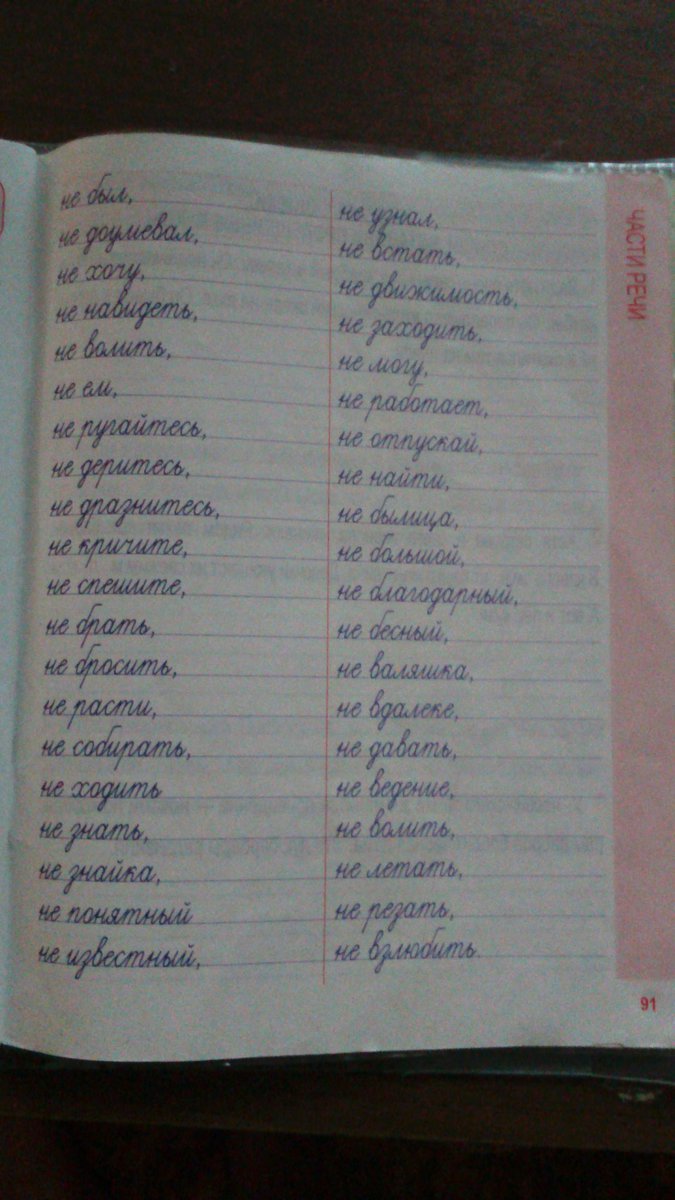 не был,
не доумевал,
не хочу,
не навидеть,
не волить,
не ем,
не ругайтесь,
не деритесь,
не дразнитесь,
не кричите,
не спешите,
не брать,
не бросить,
не расти,
не собирать,
не ходить
не знать,
не знайка,
не понятный
не известный,
не узнал,
не встать,
не движимость,
не заходить,
не могу,
не работает,
не отпускай,
не найти,
не былица,
не большой,
не благодарный,
не бесный,
не валяшка,
не вдалеке,
не давать,
не ведение,
не волить,
не летать,
не резать,
не взлюбить.
ЧАСТИ РЕЧИ
91